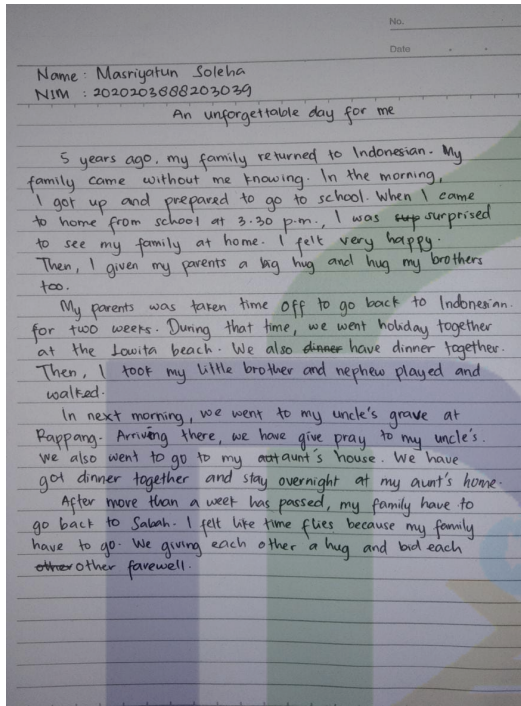 No.
Date
Name : Masriyatun Soleha
NIM : 2020203688203039
An unforgettable day for me
5 years ago, my family returned to Indonesian. My
family came without me knowing. In the morning,
I got up and prepared to go to school. When I came
to home from school at 3.30 p.m., I was sup surprised
to see my family at home. I felt very happy.
Then, I given my parents a big hug and hug my brothers
too.
My parents was taken time off to go back to Indonesian.
for two weeks. During that time, we went holiday together
at the Lowita beach. We also dinner have dinner together.
Then, I took my little brother and nephew played and
walked.
In next morning, we went to my uncle's grave at
Rappang. Arriving there, we have give pray to my uncle's.
We also went to go to my aunt's house. We have
got dinner together and stay overnight at my aunt's home.
After more than a week has passed, my family have to
go back to Sabah. I felt like time flies because my family
have to go. We giving each other a hug and bid each
other other farewell.